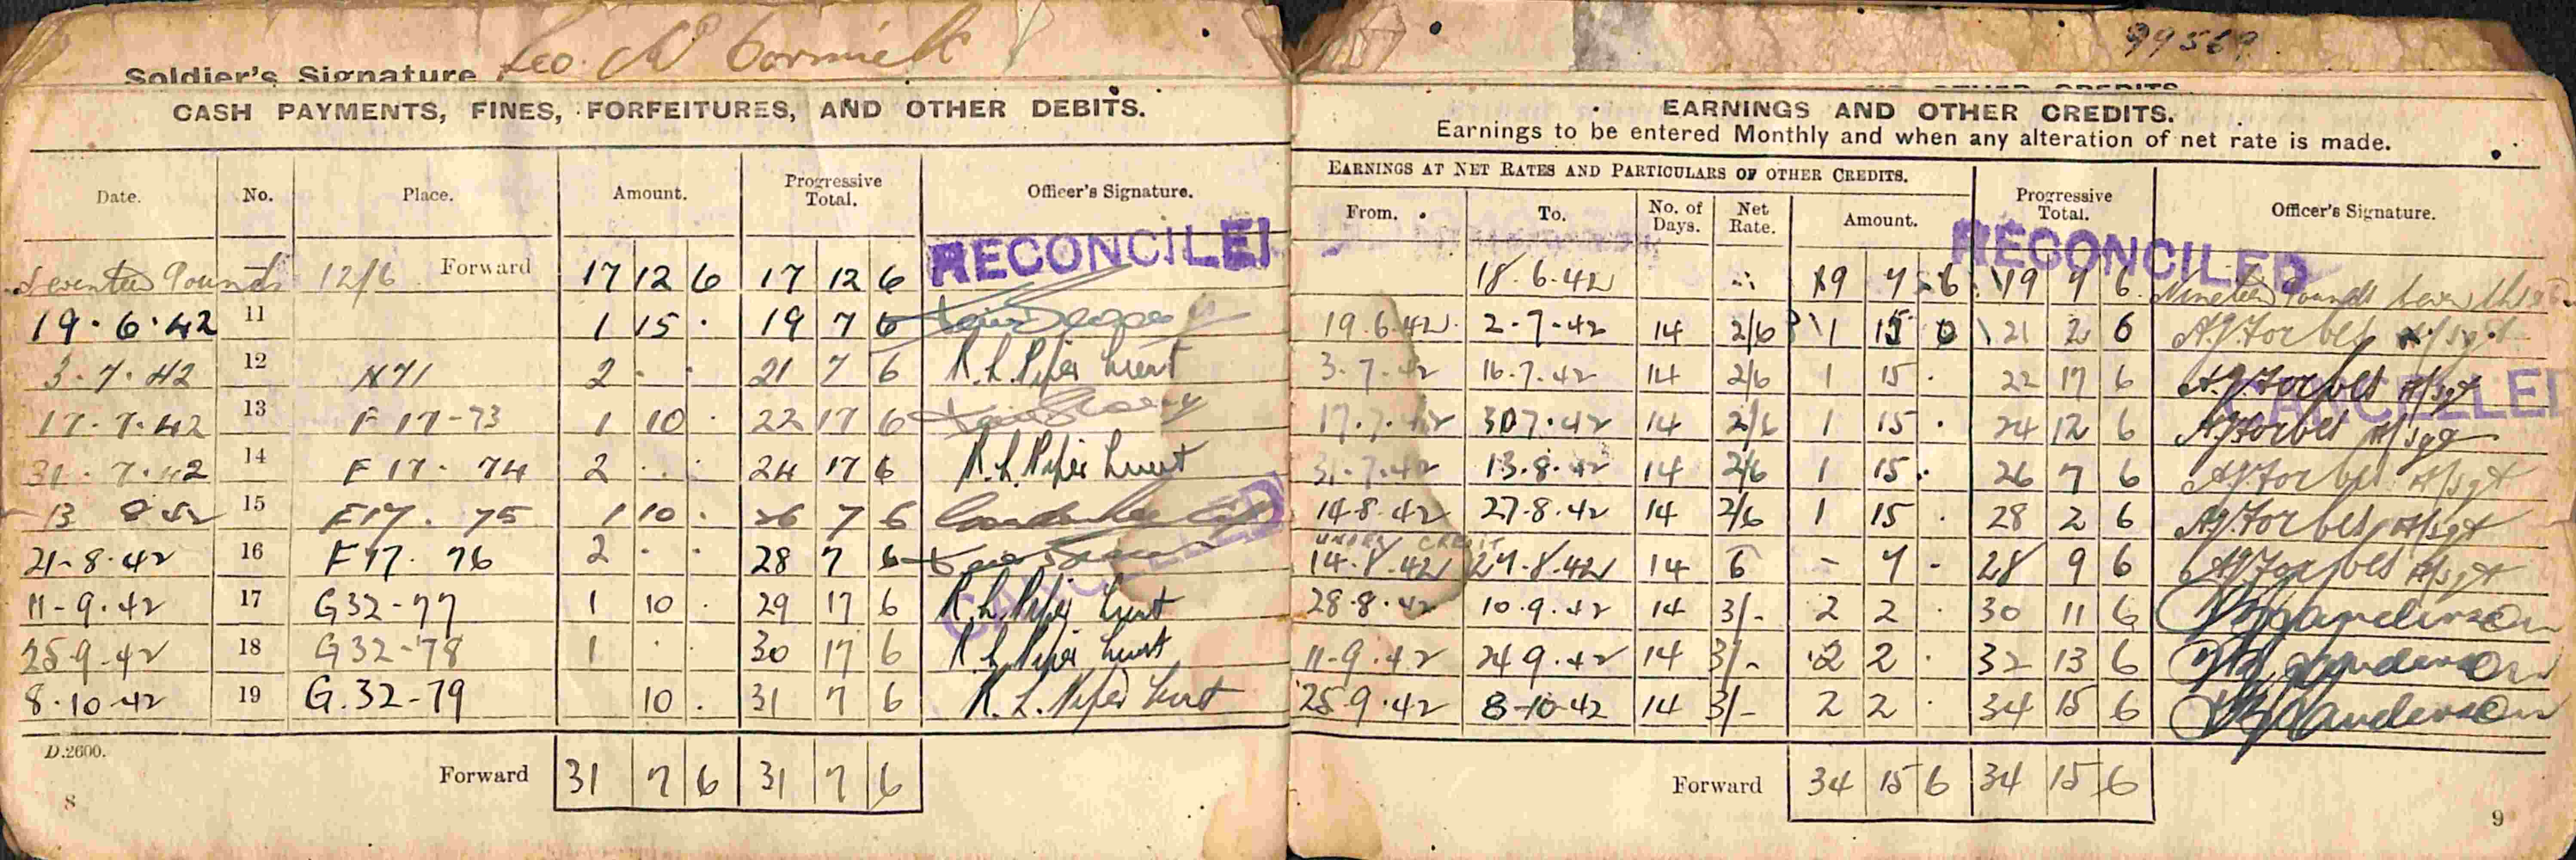 99569
Soldier's Signature Leo. McCormick
CASH PAYMENTS, FINES, FORFEITURES, AND OTHER DEBITS.
Date. No. Place. Amount. Progressive Total. Officer's Signature.
RECONCILED
Seventeen Pounds 12/6 Forward 17 12 6 17 12 6
19.6.42 11 1 15 . 19 7 6
3.7.42 12 N71 2 . . 21 7 6 R. L. Piper Lieut
17.7.42 13 F 17-73 1 10 . 22 17 6
31.7.42 14 F 17. 74 2 . . 24 17 6 R. L. Piper Lieut
13 8 42 15 F17. 75 1 10 . 26 7 6
21-8.42 16 F17. 76 2 . . 28 7 6
11-9.42 17 G32-77 1 10 . 29 17 6 R. L. Piper Lieut
25-9-42 18 G32-78 1 . . 30 17 6 R. L. Piper Lieut
8.10.42 19 G.32-79 10 . 31 7 6 R. L. Piper Lieut
CANCELLED
D.2600.
Forward 31 7 6 31 7 6
8
EARNINGS AND OTHER CREDITS.
Earnings to be entered Monthly and when any alteration of net rate is made.
EARNINGS AT NET RATES AND PARTICULARS OF OTHER CREDITS.
From. To. No. of Days. Net Rate. Amount. Progressive Total. Officer's Signature.
RECONCILED
18.6.42 19 7 6 19 7 6 Nineteen Pounds Seven
19.6.42 2-7-42 14 2/6 1 15 0 21 2 6 A.J. Forbes A/Sgt
3.7.42 16.7.42 14 2/6 1 15 . 22 17 6 A.J. Forbes A/Sgt
CANCELLED
17.7.42 30.7.42 14 2/6 1 15 . 24 12 6 A.J. Forbes A/Sgt
31.7.42 13.8.42 14 2/6 1 15 . 26 7 6 A.J. Forbes A/Sgt
14.8.42 27.8.42 14 2/6 1 15 . 28 2 6 A.J. Forbes A/Sgt
UNDER CREDIT
14.8.42 27.8.42 14 6 - 7 - 28 9 6 A.J. Forbes A/Sgt
28.8.42 10.9.42 14 3/- 2 2 . 30 11 6
11-9.42 24 9.42 14 3/- 2 2 . 32 13 6
25.9.42 8-10-42 14 3/- 2 2 . 34 15 6
Forward 34 15 6 34 15 6
9